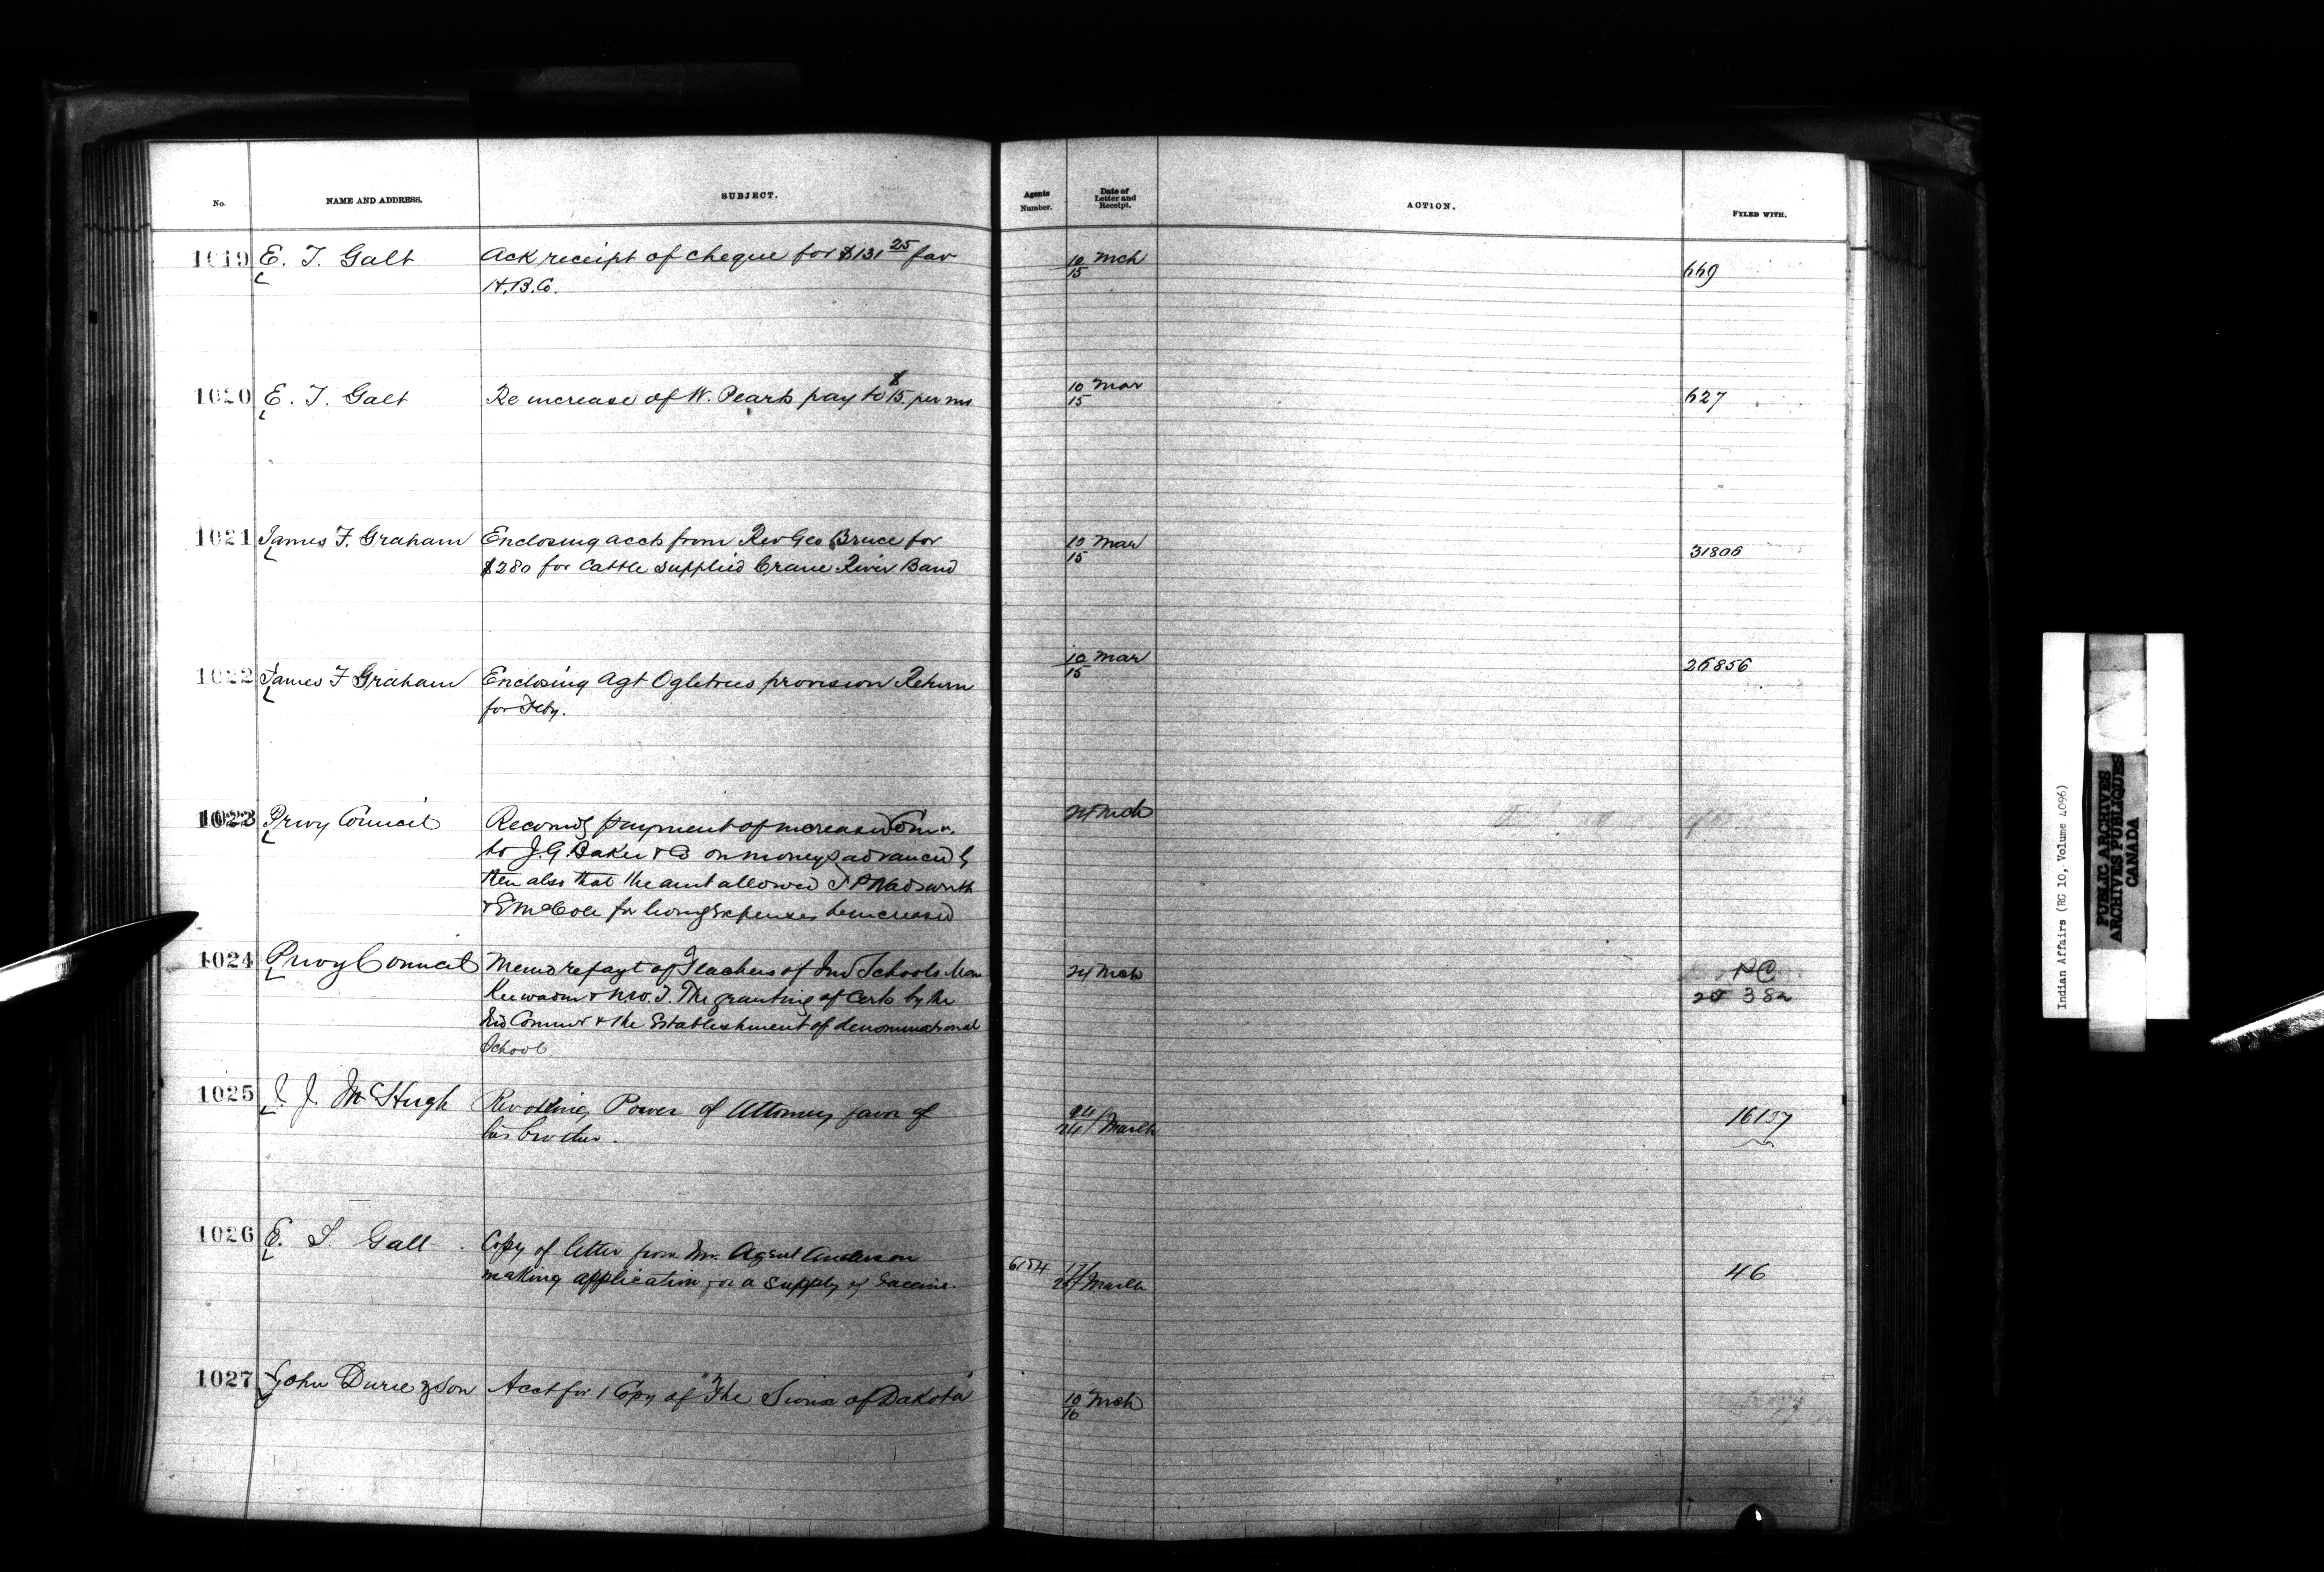 No.
NAME AND ADDRESS.
SUBJECT.
Agents Number.
Date of Letter and Receipt.
ACTION.
FYLED WITH.
1019 E. T. Galt Ack receipt of cheque for $131 25 fav 10/15 Mch 669
H.B.Co.
1020 E. T. Galt Re increase of W. Pearts pay to $15. per m 10/15 Mar 627
1021 James F. Graham Enclosing accts from Rev Geo Bruce for 10/15 Mar 31806
$280 for Cattle supplied Crane River Band
1022 James F Graham Enclosing Agt Ogletrees provision Return 10/15 Mar 26856
for Feby.
1023 Privy Council Recomdg payment of increased Comn. 24 Mch
to J.G. Baker & Co on moneys advanced by
them also that the amt allowed T P Wadsworth
& E McColl for living expenses be increased
1024 Privy Council Memo re payt of Teachers of Ind Schools Man 24 Mch PC
Keewadin & N.W.T. The granting of Certs by the 20 382
Ind Commr & the Establishment of denominational
School
1025 J. J. McHugh Revoking Power of Attorney favor of 24 March 16157
his brother.
1026 E. T. Galt Copy of letter from Mr. Agent Anderson
making application for a supply of Vaccine. March 46
1027 John Durie & Son Acct for 1 Copy of "The Sioux of Dakota" 10/16 Mch
Indian Affairs (RG 10, Volume 4096)
PUBLIC ARCHIVES
ARCHIVES PUBLIQUES
CANADA